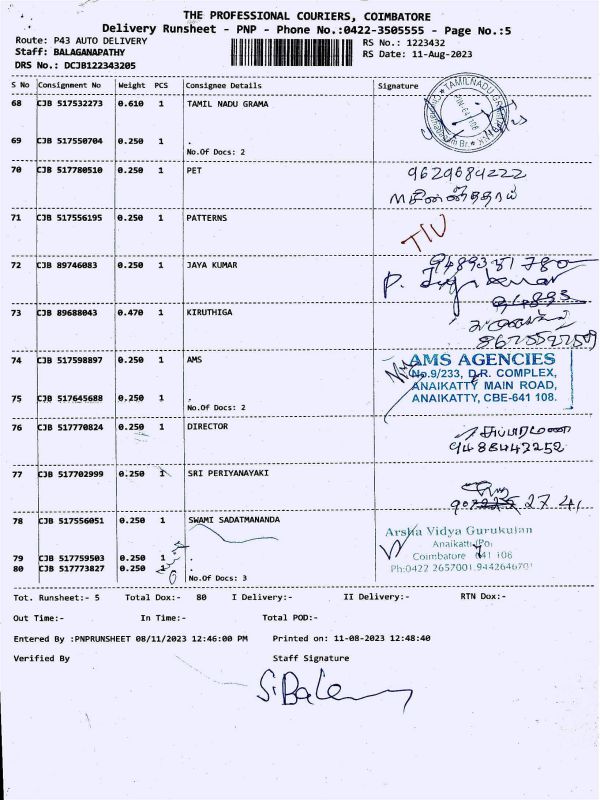 THE PROFESSIONAL COURIERS, COIMBATORE
Delivery Runsheet - PNP - Phone No.:0422-3505555 - Page No.:5
Route: P43 AUTO DELIVERY
RS No.: 1223432
Staff: BALAGANAPATHY
RS Date: 11-Aug-2023
DRS No.: DCJB122343205
S No Consignment No Weight PCS Consignee Details Signature
68 CJB 517532273 0.610 1 TAMIL NADU GRAMA
69 CJB 517550704 0.250 1 .
No.Of Docs: 2
70 CJB 517780510 0.250 1 PET 9629684222
71 CJB 517556195 0.250 1 PATTERNS
72 CJB 89746083 0.250 1 JAYA KUMAR
73 CJB 89688043 0.470 1 KIRUTHIGA
74 CJB 517598897 0.250 1 AMS
AMS AGENCIES
No.9/233, D.R. COMPLEX,
ANAIKATTY MAIN ROAD,
ANAIKATTY, CBE-641 108.
75 CJB 517645688 0.250 1 .
No.Of Docs: 2
76 CJB 517770824 0.250 1 DIRECTOR
9488443252
77 CJB 517702999 0.250 1 SRI PERIYANAYAKI
78 CJB 517556051 0.250 1 SWAMI SADATMANANDA
Arsha Vidya Gurukulam
Anaikatti(Po)
Coimbatore 641 108
Ph:0422 2657001, 9442646701
79 CJB 517759503 0.250 1
80 CJB 517773827 0.250 1 .
No.Of Docs: 3
Tot. Runsheet:- 5 Total Dox:- 80 I Delivery:- II Delivery:- RTN Dox:-
Out Time:- In Time:- Total POD:-
Entered By :PNPRUNSHEET 08/11/2023 12:46:00 PM Printed on: 11-08-2023 12:48:40
Verified By Staff Signature